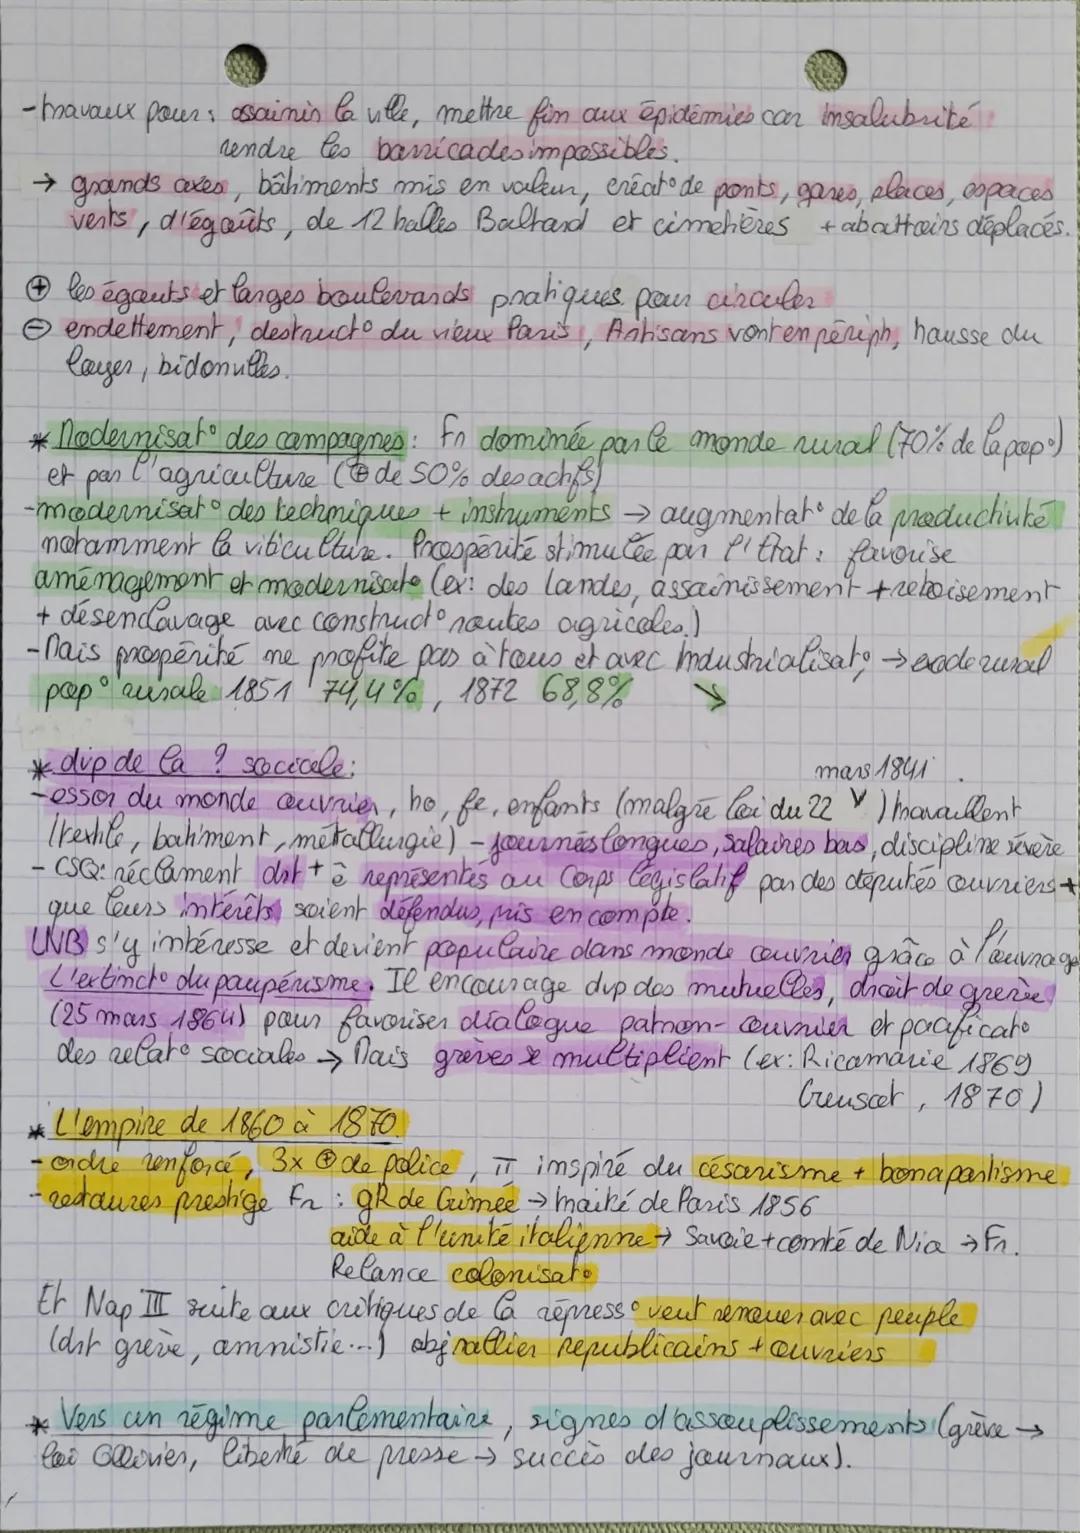 - travaux pour : assainir la ville, mettre fin aux épidémies car insalubrité
rendre les barricades impossibles.
→ grands axes, bâtiments mis en valeur, créat° de ponts, gares, places, espaces
verts, d'égoûts, de 12 halles Baltard et cimetières + abattoirs déplacés.
⊕ les égouts et larges boulevards pratiques pour circuler
⊖ endettement, destruct° du vieux Paris, Artisans vont en périph, hausse du
loyer, bidonvilles.
* Modernisat° des campagnes : Fr dominée par le monde rural (70% de la pop°)
et par l'agriculture (⊕ de 50% des actifs)
- modernisat° des techniques + instruments → augmentat° de la productivité
notamment la viticulture. Prospérité stimulée par l'Etat : favorise
aménagement et modernisat° (ex: des Landes, assainissement + reboisement
+ désenclavage avec construct° routes agricoles.)
- Mais prospérité ne profite pas à tous et avec industrialisat° → exode rural
pop° rurale 1851 74,4%, 1872 68,8% ↘
* dvp de la ? sociale :
mars 1841
- essor du monde ouvrier, ho, fe, enfants (malgré loi du 22 ∨) travaillent
(textile, bâtiment, métallurgie) - journées longues, salaires bas, discipline sévère
- CSQ: réclament drt + ê représentés au Corps législatif par des députés ouvriers +
que leurs intérêts soient défendus, pris en compte.
LNB s'y intéresse et devient populaire dans monde ouvrier grâce à l'ouvrage
L'extinct° du paupérisme. Il encourage dvp des mutuelles, droit de grève
(25 mars 1864) pour favoriser dialogue patron-ouvrier et pacificat°
des relat° sociales → Mais grèves se multiplient (ex: Ricamarie 1869
Creusot, 1870)
* L'empire de 1860 à 1870.
- ordre renforcé, 3x ⊕ de police, π inspiré du césarisme + bonapartisme
- restaures prestige Fr : gR de Crimée → traité de Paris 1856
aide à l'unité italienne → Savoie + comté de Nice → Fr.
Relance colonisat°
Et Nap III suite aux critiques de la répress° veut renouer avec peuple
(drt grève, amnistie...) obj rallier républicains + ouvriers
* Vers un régime parlementaire, signes d'assouplissements (grève →
loi Ollivier, liberté de presse → succès des journaux).